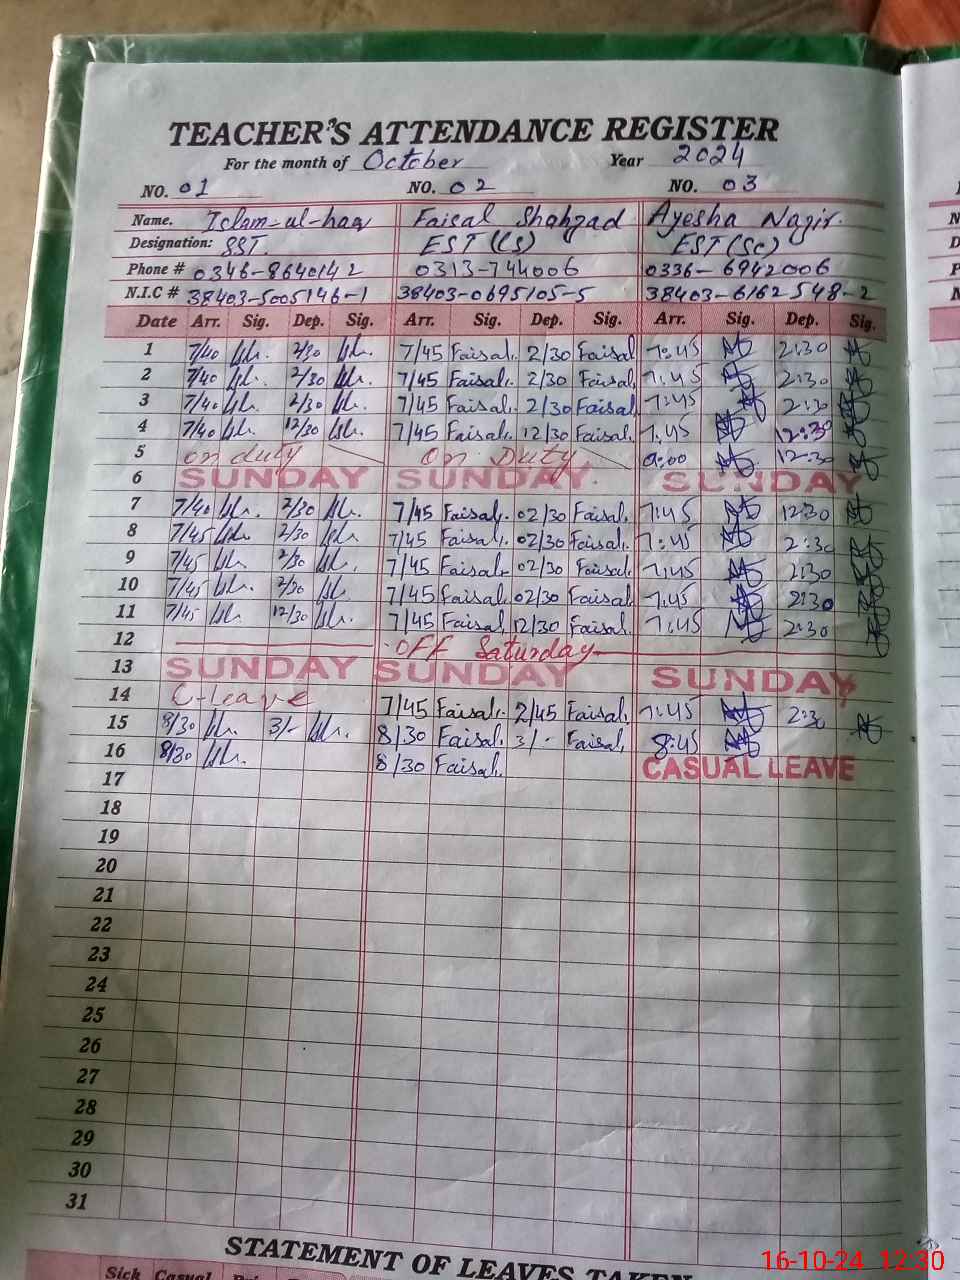 TEACHER'S ATTENDANCE REGISTER
For the month of October Year 2024
NO. 01 NO. 02 NO. 03
Name. Islam-ul-haq Faisal Shahzad Ayesha Nazir.
Designation: SST. EST (CS) EST (SC)
Phone # 0346-8640142 0313-744006 0336-6942006
N.I.C # 38403-5005146-1 38403-0695105-5 38403-6162548-2
Date Arr. Sig. Dep. Sig. Arr. Sig. Dep. Sig. Arr. Sig. Dep. Sig.
1 7/40 2/30 7/45 Faisal. 2/30 Faisal 7:45 2:30
2 7/40 2/30 7/45 Faisal. 2/30 Faisal. 7:45 2:30
3 7/40 2/30 7/45 Faisal. 2/30 Faisal. 7:45 2:30
4 7/40 12/30 7/45 Faisal. 12/30 Faisal. 7:45 12:30
5 on duty On Duty 9:00 12:30
6 SUNDAY SUNDAY SUNDAY
7 7/40 2/30 7/45 Faisal. 02/30 Faisal. 7:45 12:30
8 7/45 2/30 7/45 Faisal. 02/30 Faisal. 7:45 2:30
9 7/45 2/30 7/45 Faisal. 02/30 Faisal. 7:45 2:30
10 7/45 2/30 7/45 Faisal. 02/30 Faisal. 7:45 2:30
11 7/45 12/30 7/45 Faisal. 12/30 Faisal. 7:45 2:30
12 OFF Saturday
13 SUNDAY SUNDAY SUNDAY
14 C-leave 7/45 Faisal. 2/45 Faisal. 7:45 2:30
15 8/30 3/- 8/30 Faisal. 3/- Faisal. 8:45
16 8/30 8/30 Faisal. CASUAL LEAVE
17
18
19
20
21
22
23
24
25
26
27
28
29
30
31
STATEMENT OF LEAVES TAKEN
Sick Casual
16-10-24 12:30